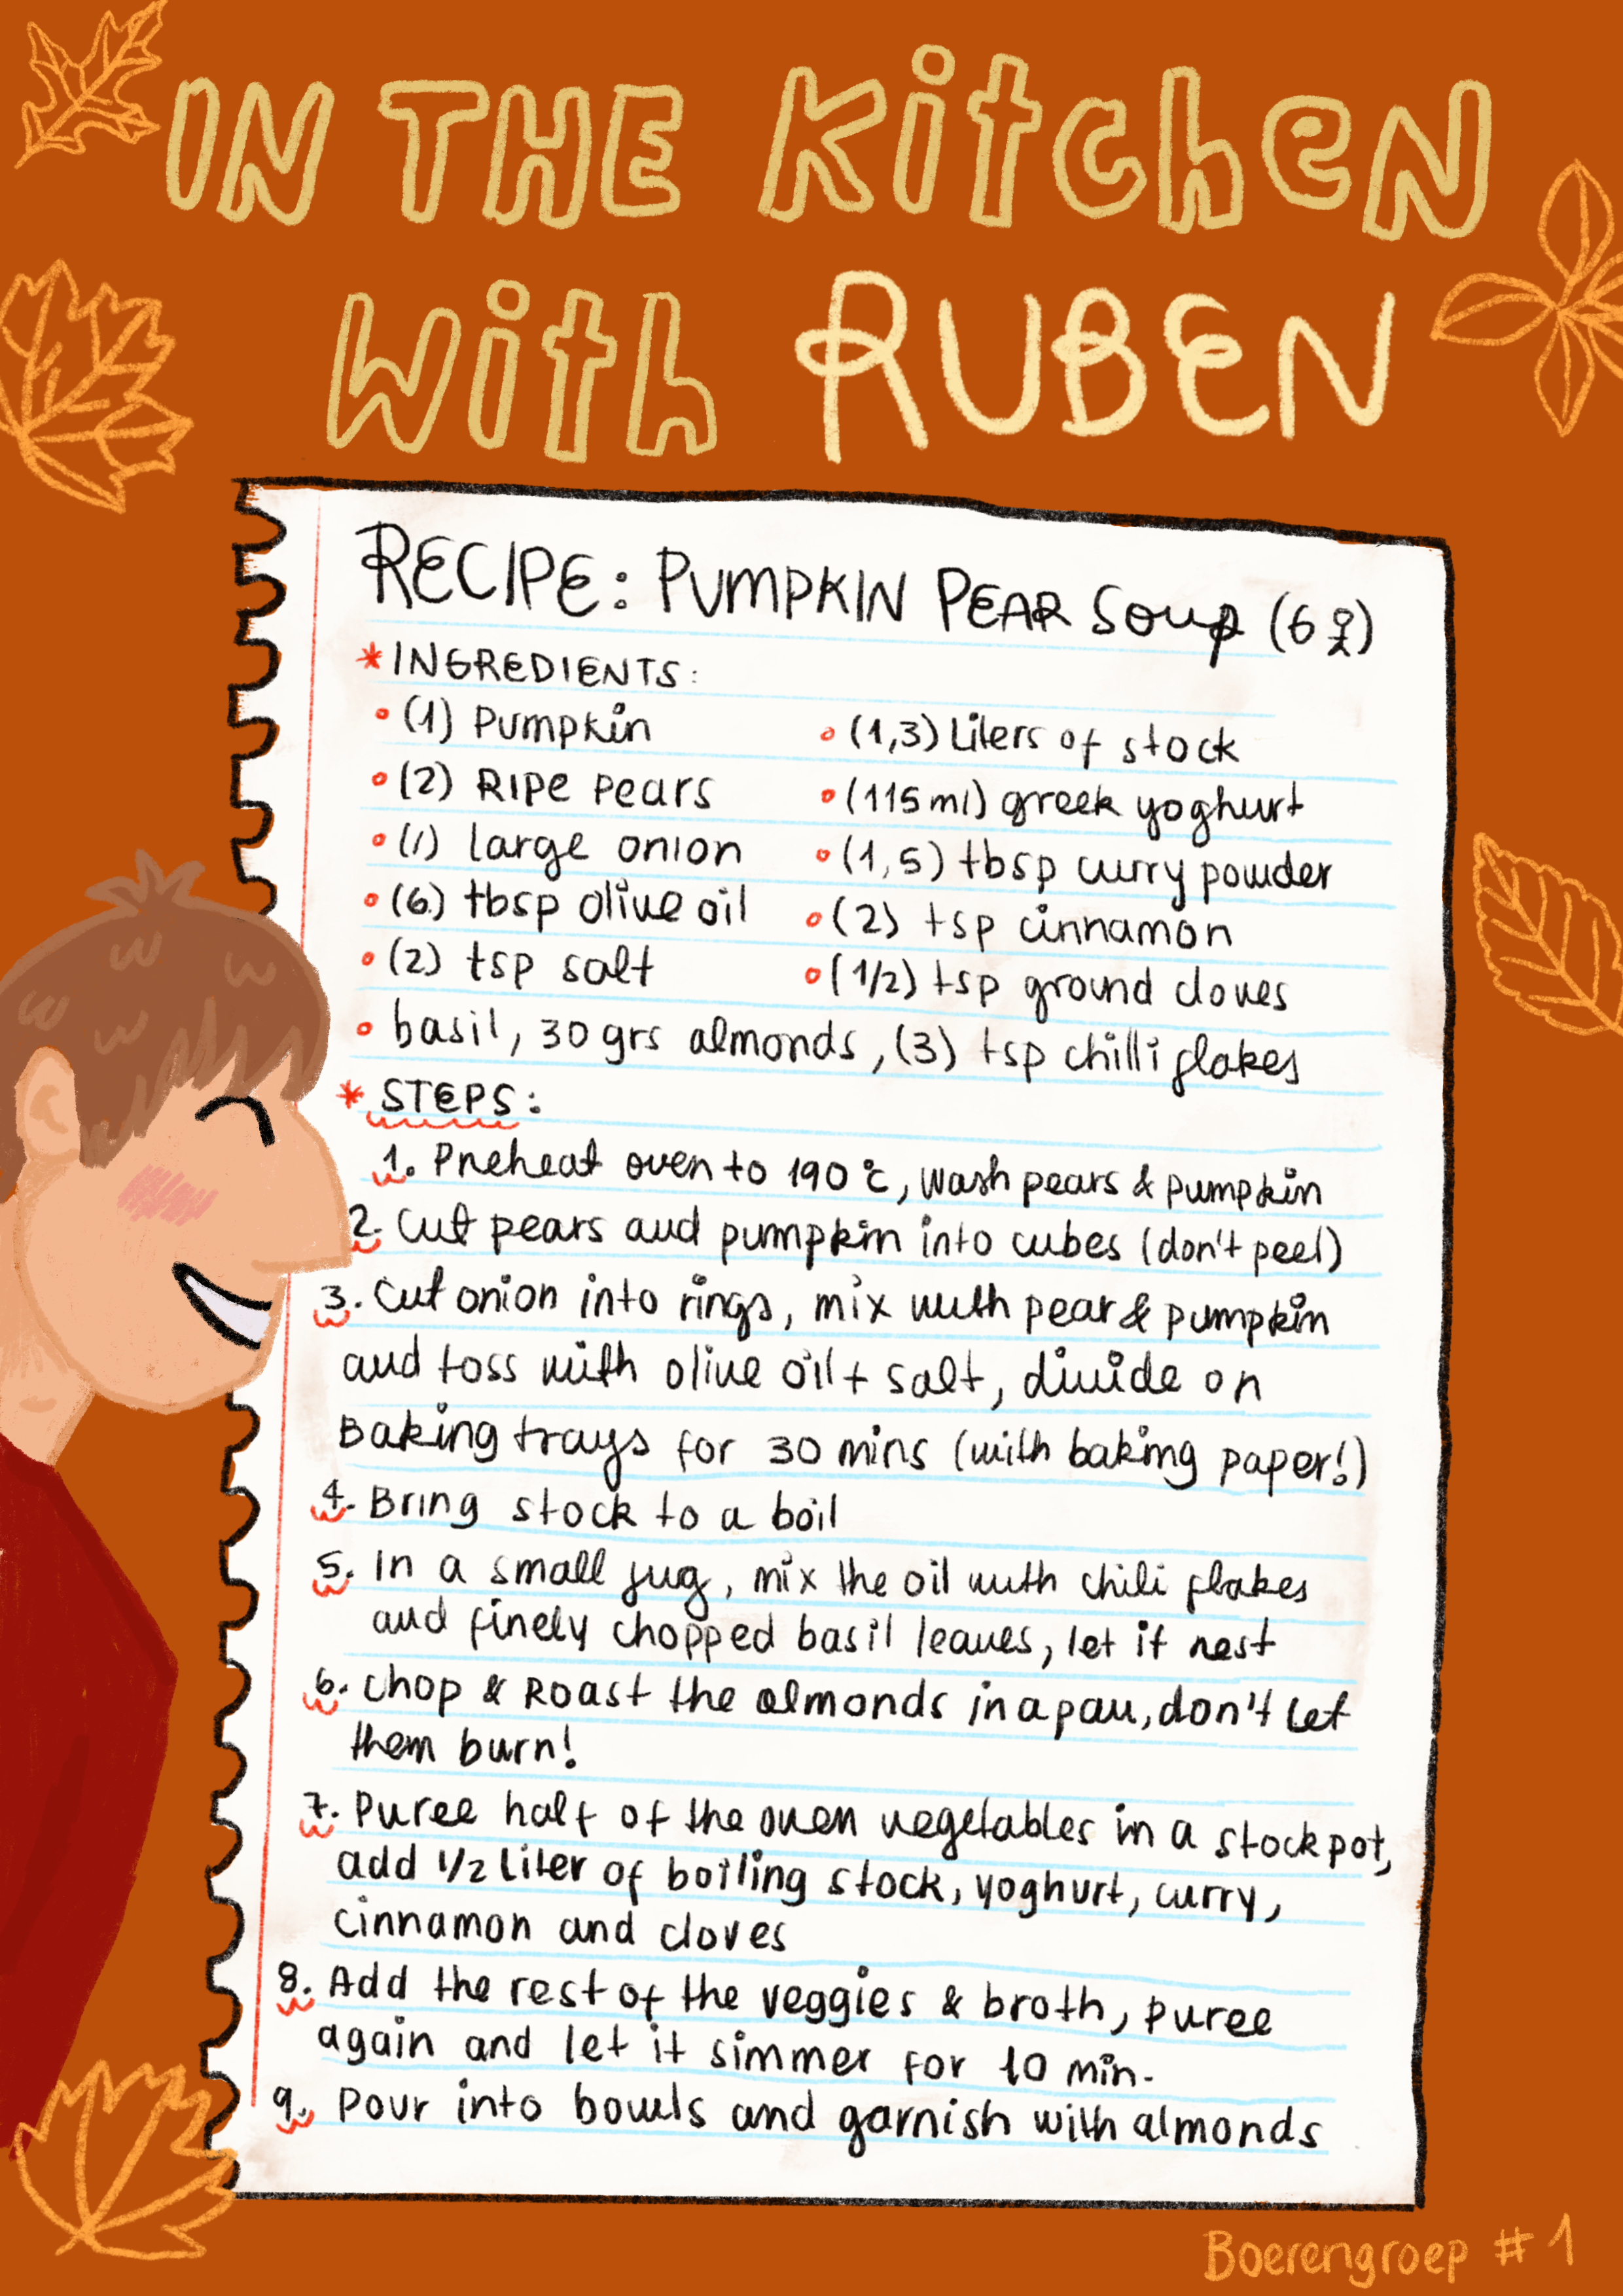 IN THE KitcheN
With RUBEN
RECIPE: PUMPKIN PEAR Soup (6)
* INGREDIENTS:
(1) Pumpkin
(2) Ripe pears
(1) large onion
(6) tbsp olive oil
(2) tsp salt
(1,3) Liters of stock
(115 ml) greek yoghurt
(1,5) tbsp curry powder
(2) tsp cinnamon
(1/2) tsp ground cloves
basil, 30 grs almonds, (3) tsp chilli flakes
* STEPS:
1. Preheat oven to 190°c, wash pears & pumpkin
2. Cut pears and pumpkin into cubes (don't peel)
3. Cut onion into rings, mix with pear & pumpkin
and toss with olive oil + salt, divide on
Baking trays for 30 mins (with baking paper!)
4. Bring stock to a boil
5. In a small jug, mix the oil with chili flakes
and finely chopped basil leaves, let it rest
6. Chop & Roast the almonds in a pan, don't let
them burn!
7. Puree half of the oven vegetables in a stockpot,
add 1/2 Liter of boiling stock, yoghurt, curry,
cinnamon and cloves
8. Add the rest of the veggies & broth, puree
again and let it simmer for 10 min.
9. Pour into bowls and garnish with almonds
Boerengroep #1